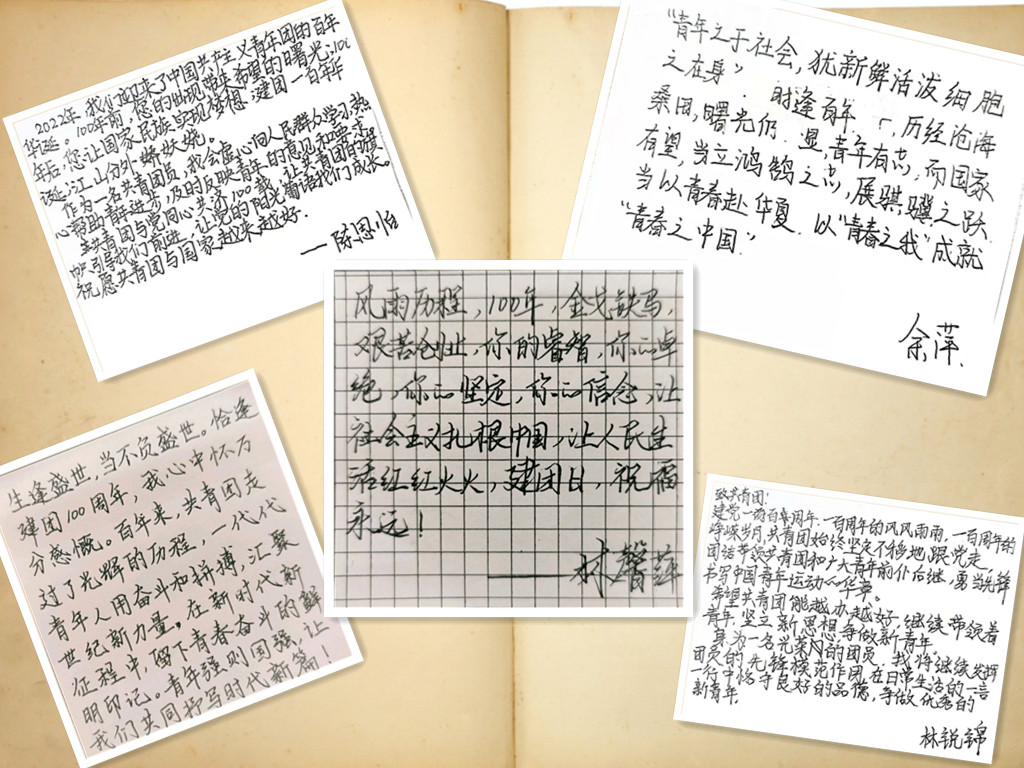 2022年,我们迎来了中国共产主义青年团的百年
华诞。100年前,您的出现带来希望的曙光;100
年后,您让国家、民族实现梦想。建团一百年华
诞,江山分外娇妖娆。
作为一名共青团员,我会虚心向人民群众学习,热
心帮助青年进步,及时反映青年的意见和要求。
祝愿共青团与国家越来越好。
——陈思怡
“青年之于社会,犹新鲜活泼细胞
之在身”.时逢百年.历经沧海
桑田,曙光仍显,青年有志,而国家
有望,当立鸿鹄之志,展骐骥之跃.
当以青春赴华夏.以“青春之我”成就
“青春之中国”
余萍.
风雨历程,100年,金戈铁马,
艰苦创业,你的睿智,你的卓
绝,你的坚定,你的信念,让
社会主义扎根中国,让人民生
活红红火火,建团日,祝福
永远!
——林馨萍
生逢盛世,当不负盛世。恰逢
建团100周年,我心中怀万
分感慨。百年来,共青团走
过了光辉的历程,一代代
青年人用奋斗和拼搏,汇聚
世纪新力量。在新时代新
征程中,留下青春奋斗的鲜
明印记。青年强则国强,让
我们共同抒写时代新篇!
致共青团:
建党一百周年.一百周年的风风雨雨,一百周年的
峥嵘岁月,共青团始终坚定不移地跟党走,
团结带领共青团和广大青年前仆后继,勇当先锋
书写中国青年运动的华章。
希望共青团能越办越好,继续带领着
青年,坚立新思想,争做新青年.
身为一名光荣的团员,我将继续发挥
团员的先锋模范作用,在日常生活的一言
一行中恪守良好的品德,争做优秀的
新青年.
林锐锦